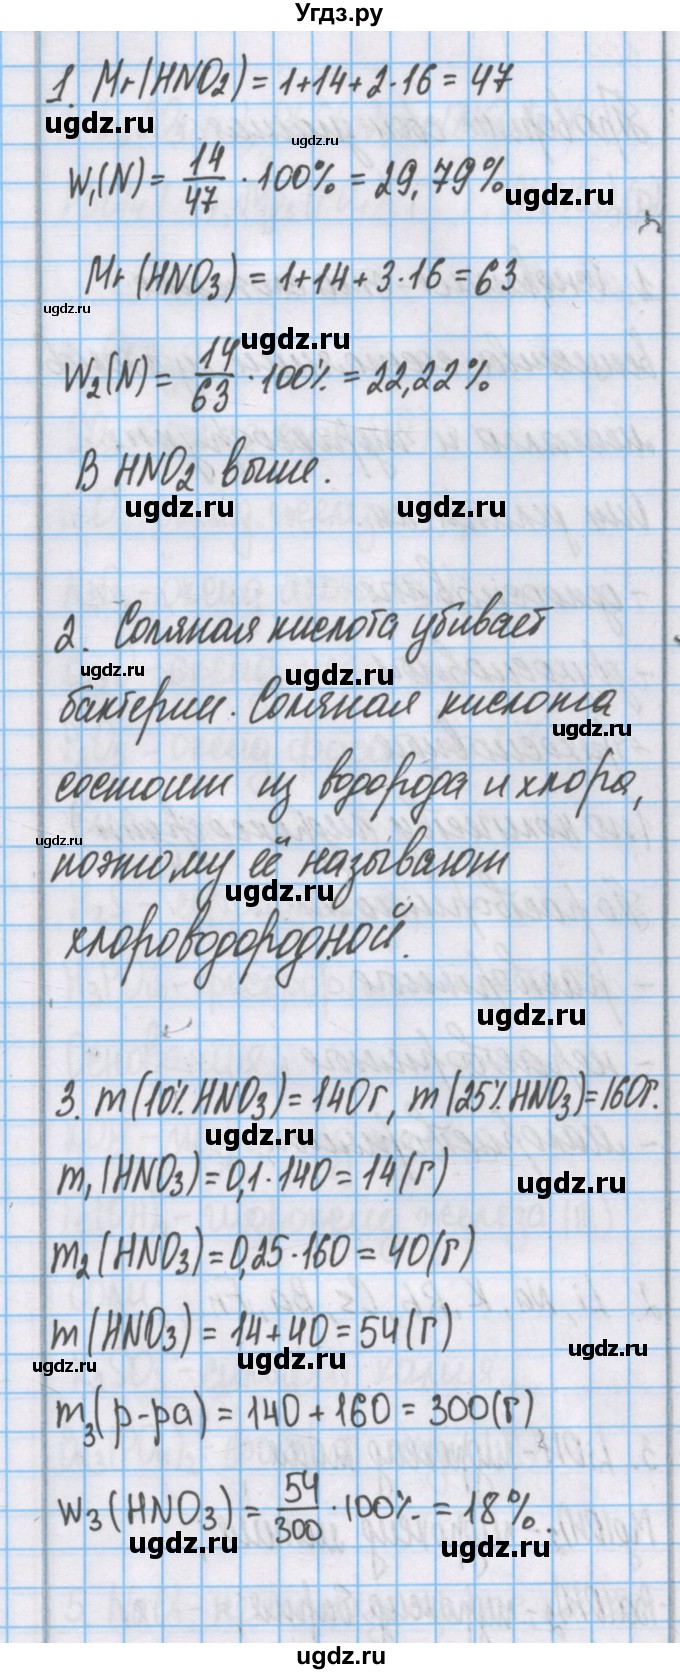 Угдз.ру
1. Mr(HNO2) = 1+14+2·16 = 47
ugdz.ru ugdz.ru
W1(N) = 14/47 · 100% = 29,79%
ugdz.ru
Mr(HNO3) = 1+14+3·16 = 63
ugdz.ru
ugdz.ru
W2(N) = 14/63 · 100% = 22,22%
В HNO2 выше.
ugdz.ru ugdz.ru
2. Соляная кислота убивает
ugdz.ru ugdz.ru
бактерии. Соляная кислота
ugdz.ru
состоит из водорода и хлора,
ugdz.ru
поэтому её называют
ugdz.ru
хлороводородной.
ugdz.ru
3. m(10% HNO3) = 140г, m(25% HNO3) = 160г.
ugdz.ru
m1(HNO3) = 0,1·140 = 14(г)
ugdz.ru
m2(HNO3) = 0,25·160 = 40(г)
m(HNO3) = 14+40 = 54(г)
ugdz.ru ugdz.ru ugdz.ru
m3(р-ра) = 140+160 = 300(г)
W3(HNO3) = 54/300 · 100% = 18%.
ugdz.ru ugdz.ru
ugdz.ru